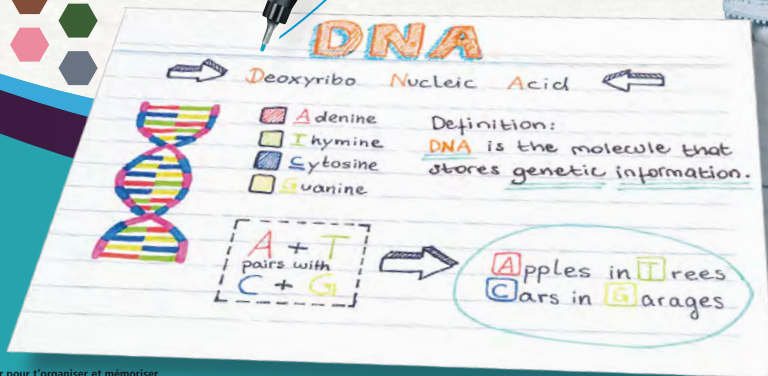 DNA
Deoxyribo Nucleic Acid
Adenine
Thymine
Cytosine
Guanine
Definition:
DNA is the molecule that
stores genetic information.
A + T
pairs with
C + G
Apples in Trees
Cars in Garages
pour t'organiser et mémoriser